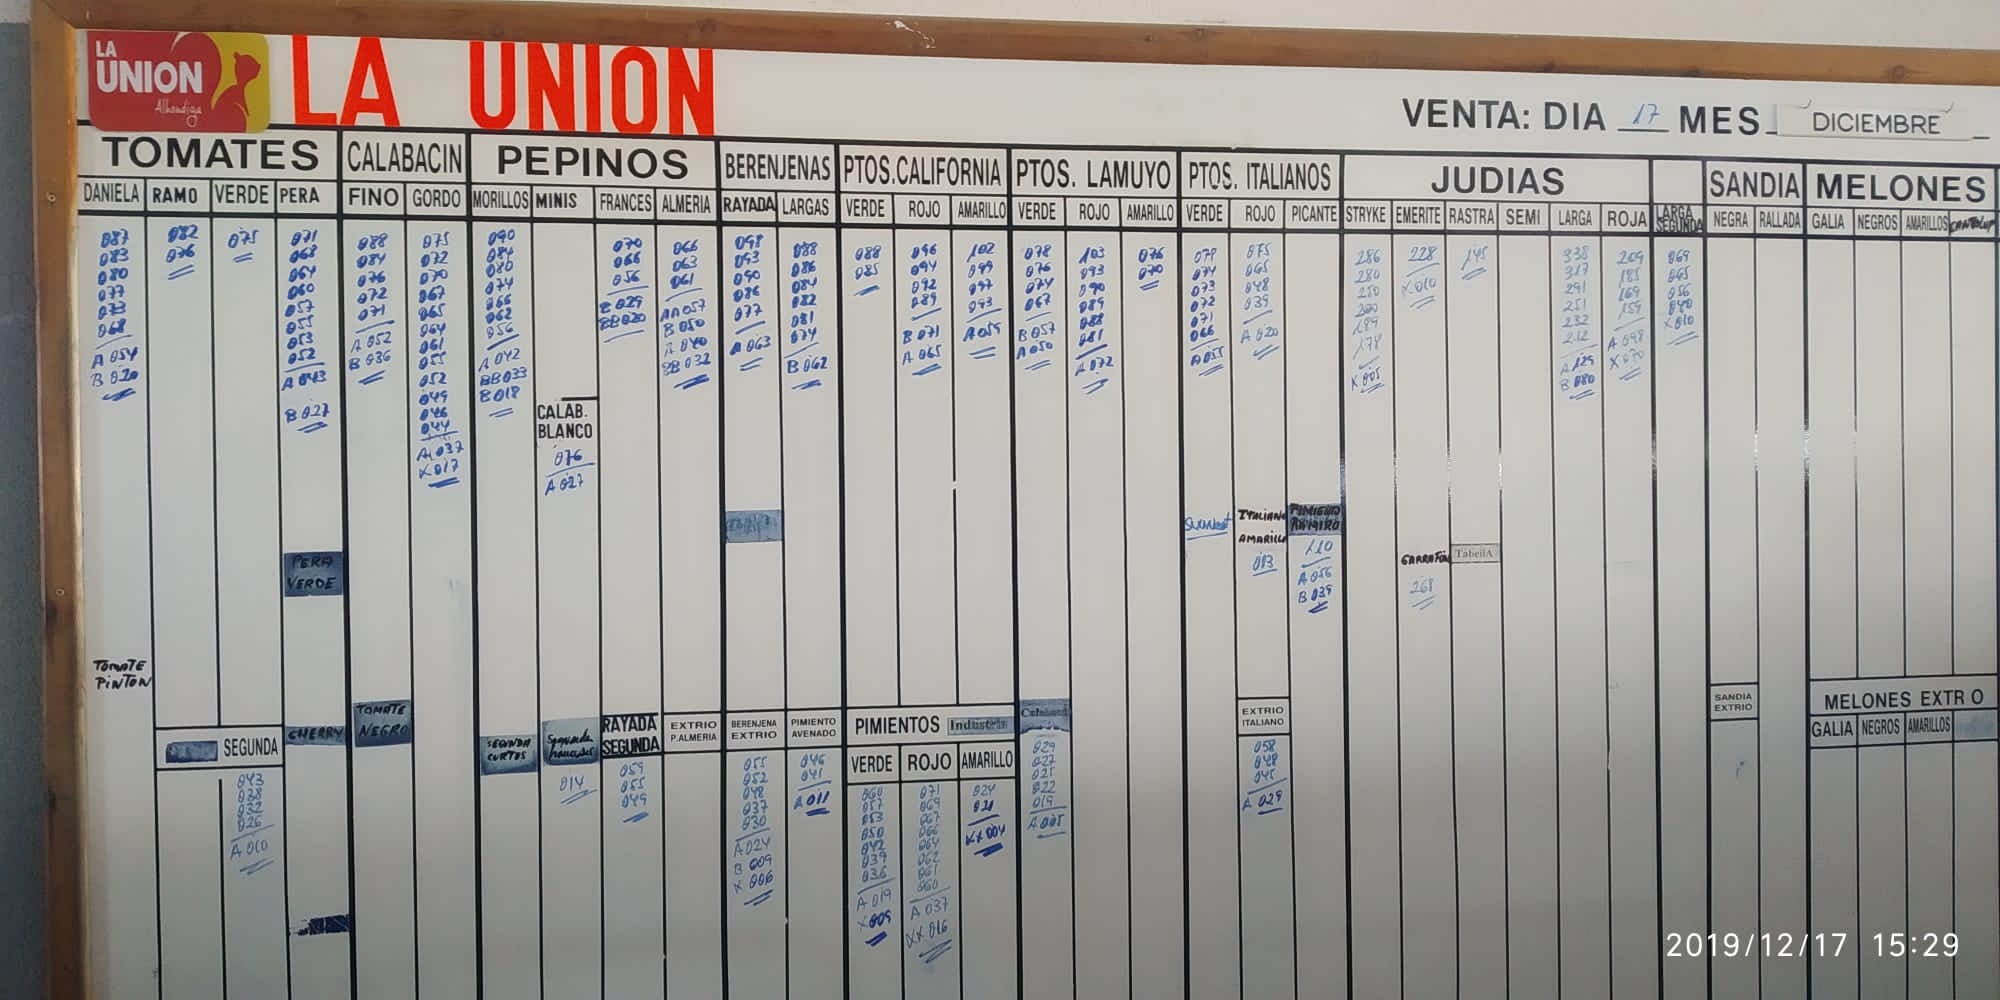 LA
UNION
Alhondiga
LA UNION
VENTA: DIA 17 MES DICIEMBRE
TOMATES
CALABACIN
PEPINOS
BERENJENAS
PTOS.CALIFORNIA
PTOS. LAMUYO
PTOS. ITALIANOS
JUDIAS
SANDIA
MELONES
DANIELA
RAMO
VERDE
PERA
FINO
GORDO
MORILLOS
MINIS
FRANCES
ALMERIA
RAYADA
LARGAS
VERDE
ROJO
AMARILLO
VERDE
ROJO
AMARILLO
VERDE
ROJO
PICANTE
STRYKE
EMERITE
RASTRA
SEMI
LARGA
ROJA
LARGA
SEGUNDA
NEGRA
RALLADA
GALIA
NEGROS
AMARILLOS
087
083
080
077
073
068
A 054
B 020
TOMATE
PINTON
082
076
075
071
068
064
060
057
055
053
052
A 043
B 027
PERA
VERDE
088
084
076
072
071
A 052
B 036
075
072
070
067
065
064
061
055
052
049
046
044
A 037
X 017
090
084
080
074
066
062
056
A 042
BB 033
B 018
CALAB.
BLANCO
076
A 027
070
066
056
B 029
BB 020
066
063
061
AA 057
B 050
A 040
BB 032
098
093
090
086
077
A 063
088
086
084
082
081
074
B 062
088
085
096
094
092
089
B 071
A 065
102
099
097
093
A 059
078
076
074
067
B 057
A 050
103
093
090
089
088
081
A 072
076
070
079
074
073
072
071
066
A 055
075
065
048
039
A 020
ITALIANO
AMARILLO
013
PIMIENTO
RAMIRO
110
A 056
B 039
286
280
250
200
189
178
X 005
228
X 010
GARRAFON
268
145
TabellA
338
317
291
251
232
212
A 129
B 080
209
185
169
159
A 098
X 070
069
065
056
040
X 010
SEGUNDA
043
038
032
026
A 010
CHERRY
TOMATE
NEGRO
SEGUNDA
CORTOS
Segunda
frances
014
RAYADA
SEGUNDA
059
055
049
EXTRIO
P.ALMERIA
BERENJENA
EXTRIO
055
052
048
037
030
A 024
B 009
X 006
PIMIENTO
AVENADO
046
041
A 011
PIMIENTOS Industria
VERDE
ROJO
AMARILLO
060
057
053
050
042
039
036
A 019
X 009
071
069
067
066
064
062
061
060
A 037
XX 016
024
021
XX 004
029
027
025
022
019
A 005
EXTRIO
ITALIANO
058
048
045
A 029
SANDIA
EXTRIO
MELONES EXTR O
GALIA
NEGROS
AMARILLOS
2019/12/17 15:29